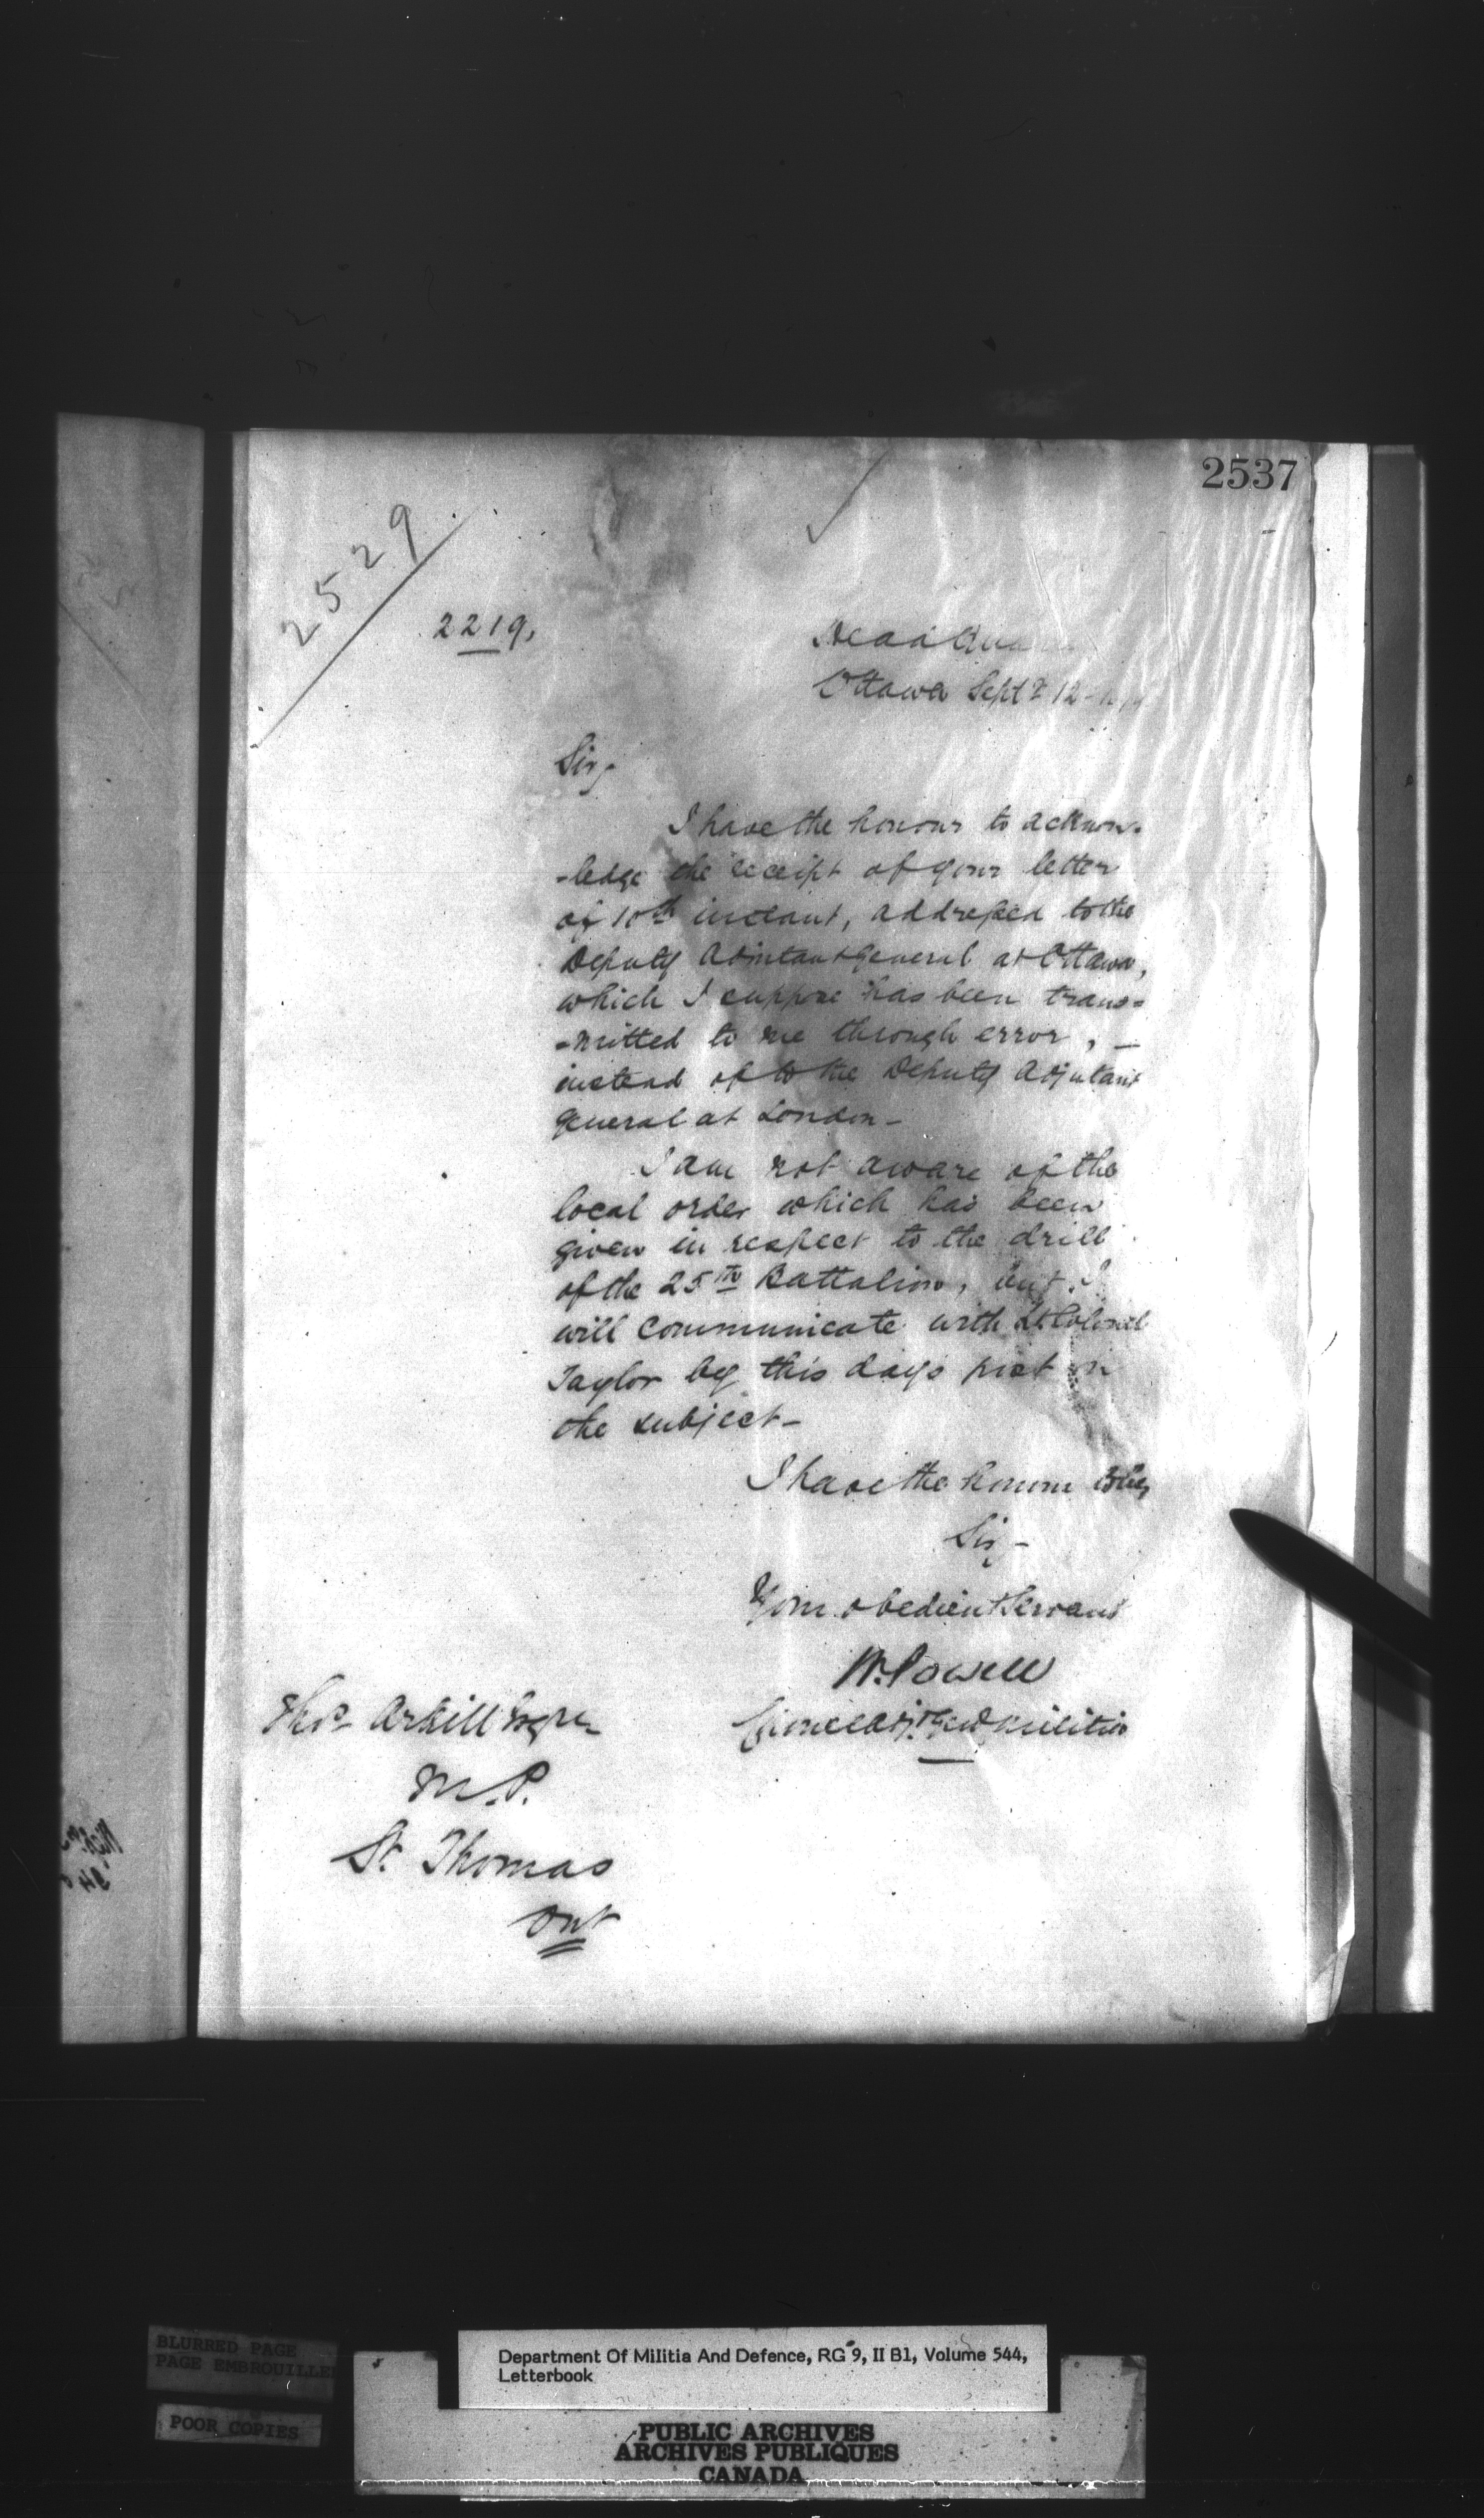 2537
2529
2219,
Head Qua
Ottawa Sept 12
Sir,
I have the honour to acknow-
-ledge the receipt of your letter
of 10th instant, addressed to the
Deputy Adjutant General at Ottawa,
which I suppose has been trans-
-mitted to me through error, —
instead of to the Deputy Adjutant
General at London —
I am not aware of the
local order which has been
given in respect to the drill
of the 25th Battalion, but I
will communicate with Lt. Colonel
Taylor by this days post on
the subject —
I have the honour to be,
Sir, —
Your obedient Servant
W. Powell
Militia
Thos Arkill Esqre
M.P.
St. Thomas
Ont
BLURRED PAGE
PAGE EMBROUILLE
POOR COPIES
Department Of Militia And Defence, RG 9, II B1, Volume 544,
Letterbook
PUBLIC ARCHIVES
ARCHIVES PUBLIQUES
CANADA